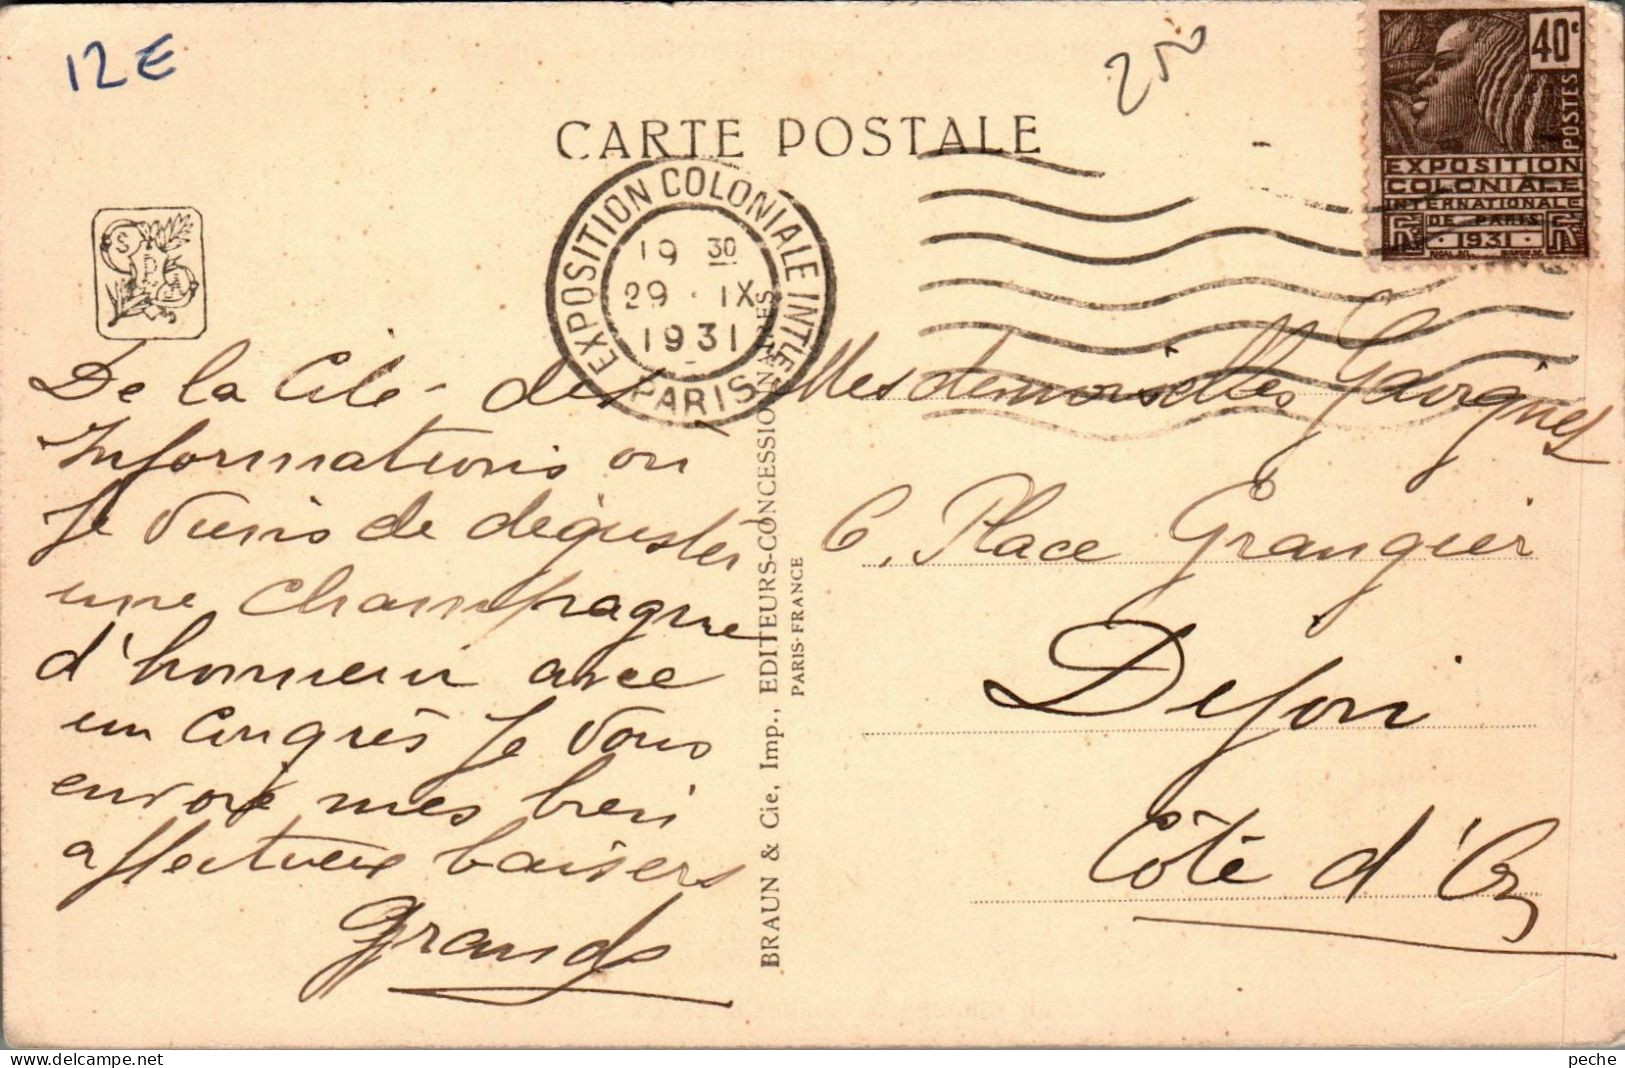 12 E
250
CARTE POSTALE
40c
POSTES
EXPOSITION
COLONIALE
INTERNATIONALE
DE PARIS
1931
EXPOSITION COLONIALE INTLE
PARIS
19 30
29 · IX
1931
De la Cité des
Informations ou
Je viens de déguster
une Champagne
d'honneur avec
un Congrès Je vous
envoie mes bien
affectueux baisers
BRAUN & Cie, Imp., EDITEURS-CONCESSIONNAIRES
PARIS-FRANCE
Mesdemoiselles
6, Place Grangier
Dijon
Côté d'Or
peche
www.delcampe.net